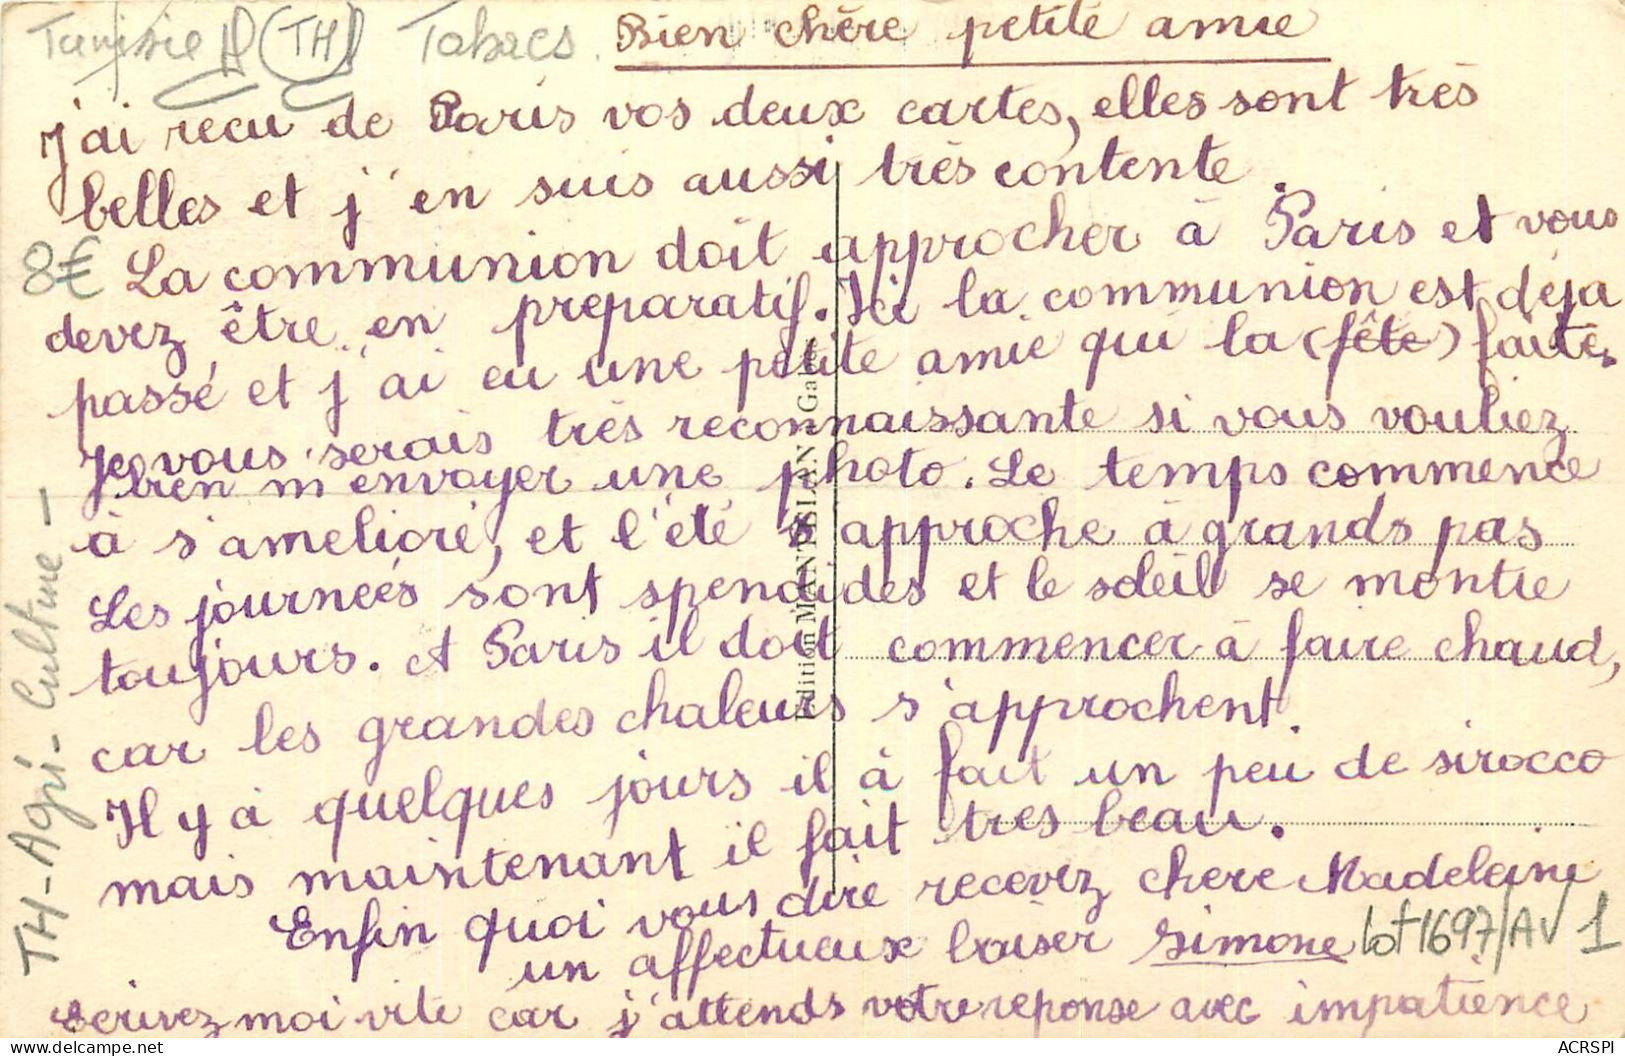 Tunisie (TH) Tabacs.
Bien chère petite amie
J'ai recu de Paris vos deux cartes, elles sont très
belles et j'en suis aussi très contente.
8€
La communion doit approcher à Paris et vous
devez être en preparatif. Ici la communion est déja
passé et j'ai eu une petite amie qui la (fête) faite.
Je vous serais très reconnaissante si vous vouliez
bien m'envoyer une photo. Le temps commence
à s'ameliore, et l'été s'approche à grands pas
Les journées sont spendides et le soleil se montre
toujours. A Paris il doit commencer à faire chaud,
car les grandes chaleurs s'approchent.
Il y à quelques jours il à fait un peu de sirocco
mais maintenant il fait très beau.
Enfin quoi vous dire recevez chere Madeleine
un affectueux baiser Simone
Ecrivez moi vite car j'attends votre reponse avec impatience
TH - Agri - Culture -
lot 1697/AV 1
Edition MANTSIAN - Ga
ACRSPI